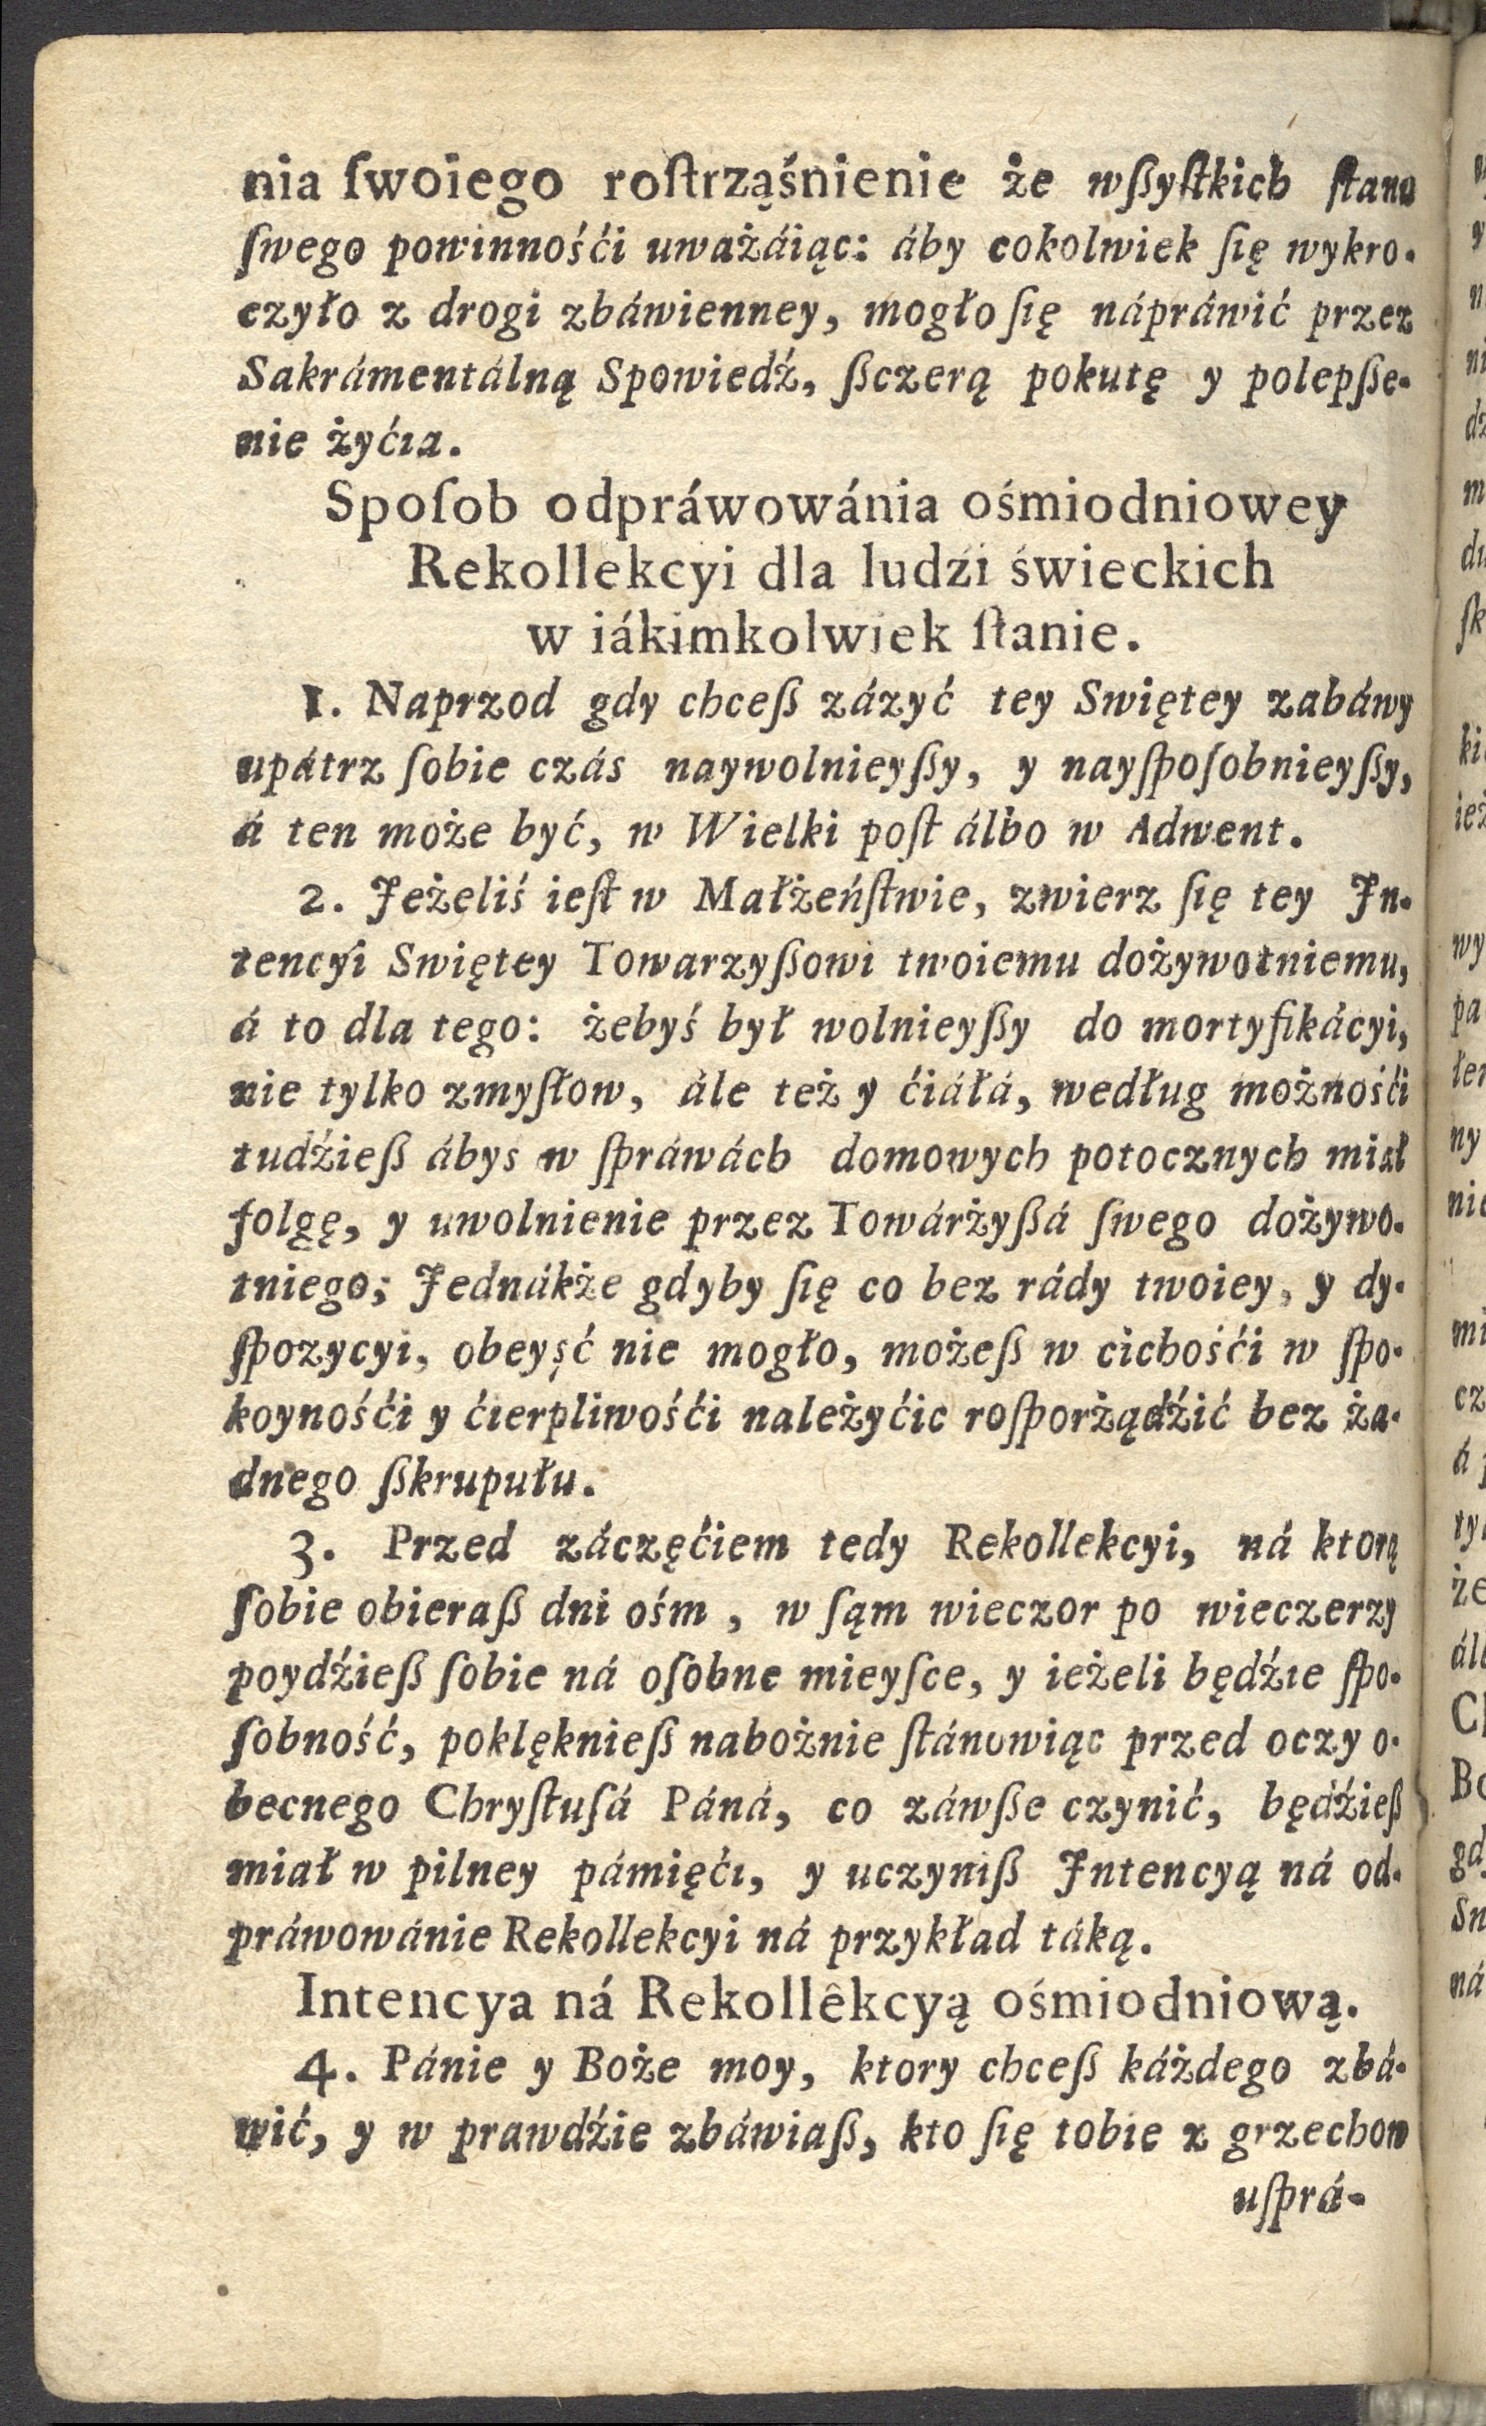 nia ſwoiego roſtrząśnienie że wſzyſtkich ſtanu
ſwego powinnośći uważáiąc: áby cokolwiek ſię wykro-
czyło z drogi zbáwienney, mogło ſię nápráwić przez
Sakrámentálną Spowiedź, ſzczerą pokutę y polepſze-
nie żyćia.
Spoſob odpráwowánia ośmiodniowey
Rekollekcyi dla ludźi świeckich
w iákimkolwiek ſtanie.
1. Naprzod gdy chceſz zázyć tey Swiętey zabáwy
upátrz ſobie czás naywolnieyſzy, y nayſpoſobnieyſzy,
á ten może być, w Wielki poſt álbo w Adwent.
2. Jeżeliś ieſt w Małżeńſtwie, zwierz ſię tey In-
tencyi Swiętey Towarzyſzowi twoiemu dożywotniemu,
á to dla tego: żebyś był wolnieyſzy do mortyfikácyi,
nie tylko zmyſłow, ále też y ćiáłá, według możnośći
tudźieſz ábys w ſpráwách domowych potocznych miał
folgę, y uwolnienie przez Towárżyſzá ſwego dożywo-
tniego; Jednákże gdyby ſię co bez rády twoiey, y dy-
ſpozycyi, obeyść nie mogło, możeſz w cichośći w ſpo-
koynośći y ćierpliwośći należyćic roſporżądźić bez ża-
dnego ſzkrupułu.
3. Przed záczęćiem tedy Rekollekcyi, ná ktorą
ſobie obieraſz dni ośm, w ſąm wieczor po wieczerzy
poydźieſz ſobie ná oſobne mieyſce, y ieżeli będźie ſpo-
ſobność, poklęknieſz nabożnie ſtánowiąc przed oczy o-
becnego Chryſtuſá Páná, co záwſze czynić, będźieſz
miał w pilney pámięći, y uczyniſz Intencyą ná od-
práwowánie Rekollekcyi ná przykład táką.
Intencya ná Rekollêkcyą ośmiodniową.
4. Pánie y Boże moy, ktory chceſz káżdego zbá-
wić, y w prawdźie zbáwiaſz, kto ſię tobie z grzechow
uſprá-